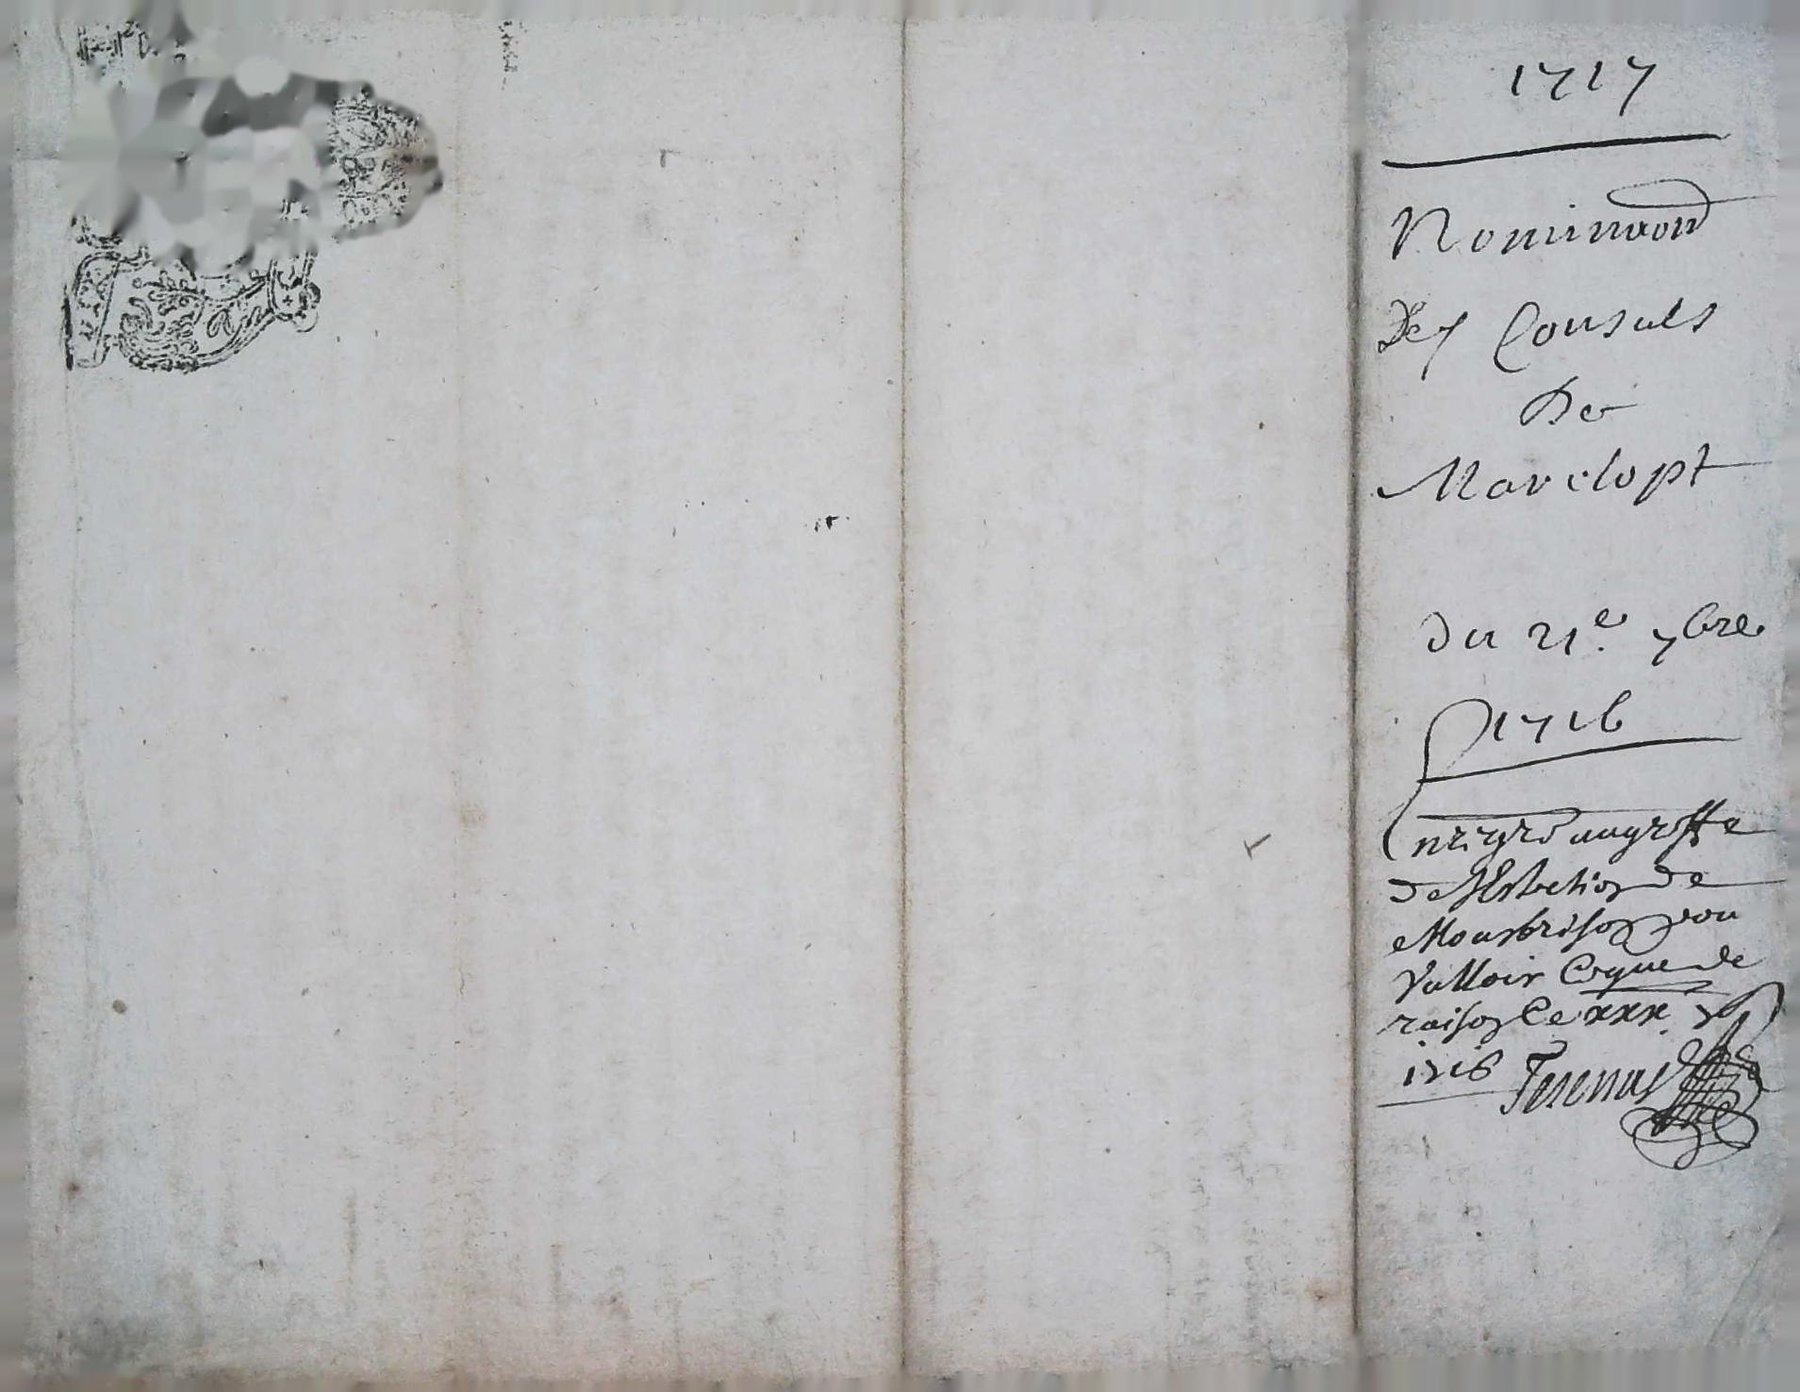 1717
Nominaōn
Des Consuls
De
Marclopt
du 21e. 7bre
1716
Enrigré au greffe
de l'Election de
Montbrison pour
Valloir Coque de
raison Ce xxx.
1716